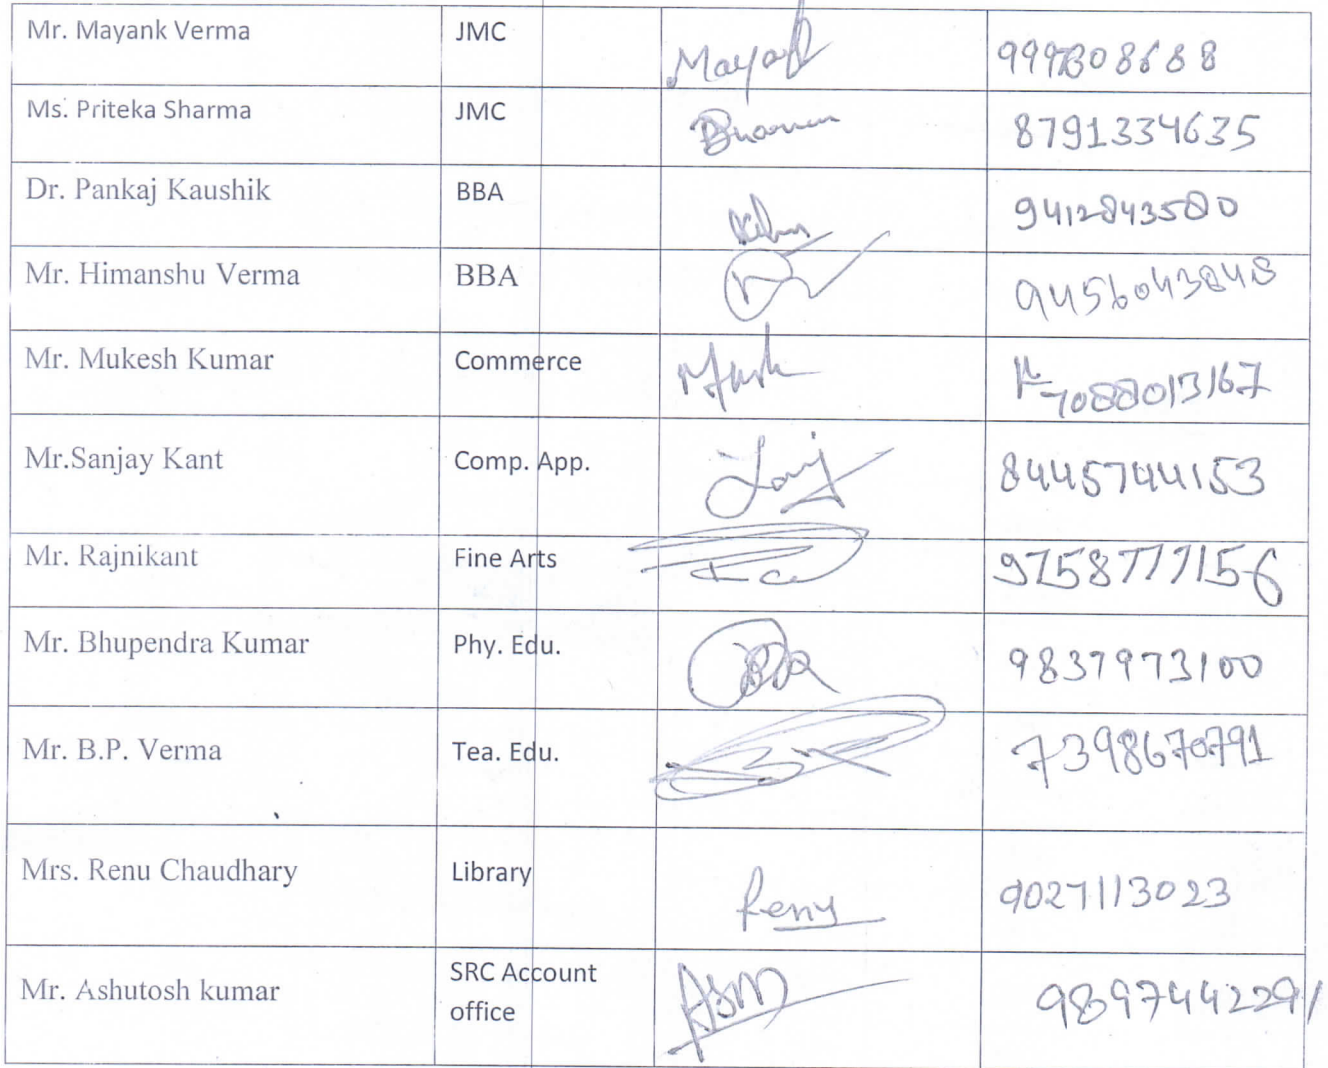 Mr. Mayank Verma JMC Mayank
Ms. Priteka Sharma JMC 8791334635
Dr. Pankaj Kaushik BBA 9412843580
Mr. Himanshu Verma BBA 9456043848
Mr. Mukesh Kumar Commerce 7088013167
Mr.Sanjay Kant Comp. App. 8445744153
Mr. Rajnikant Fine Arts 9758777156
Mr. Bhupendra Kumar Phy. Edu. 9837973100
Mr. B.P. Verma Tea. Edu. 7398670791
Mrs. Renu Chaudhary Library Renu 9027113023
Mr. Ashutosh kumar SRC Account 9897442291
office